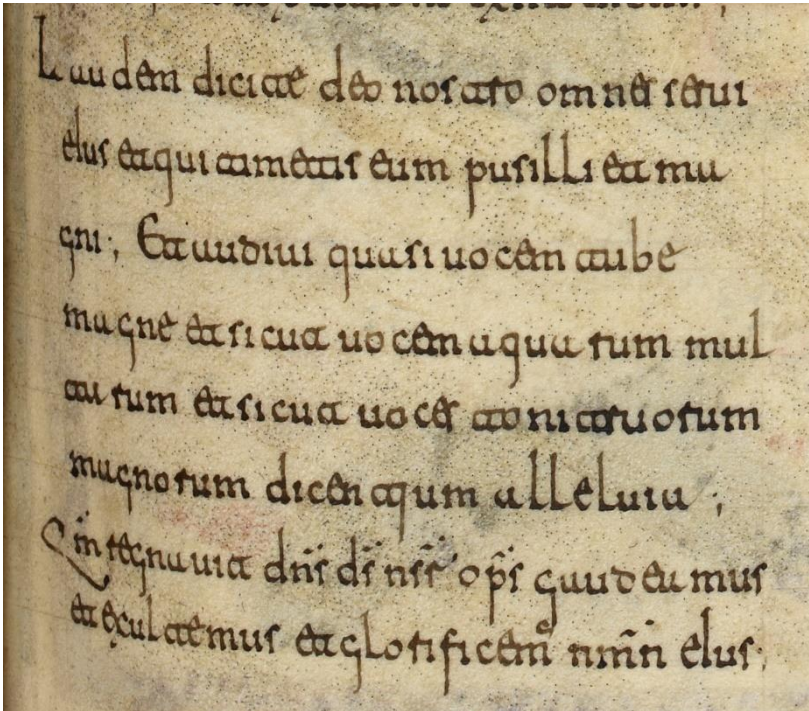 Laudem dicite deo nostro omnes serui
eius et qui timetis eum pusilli et ma
gni ; Et audiui quasi uocem tube
magne et sicut uocem aquarum mul
tarum et sicut uoces tonitruorum
magnorum dicentium alleluia ;
Qm̄ regnauit dn̄s ds̄ nsr̄ op̄s gaudeamus
et exultemus et glorificem᾽ nmn̄ eius.